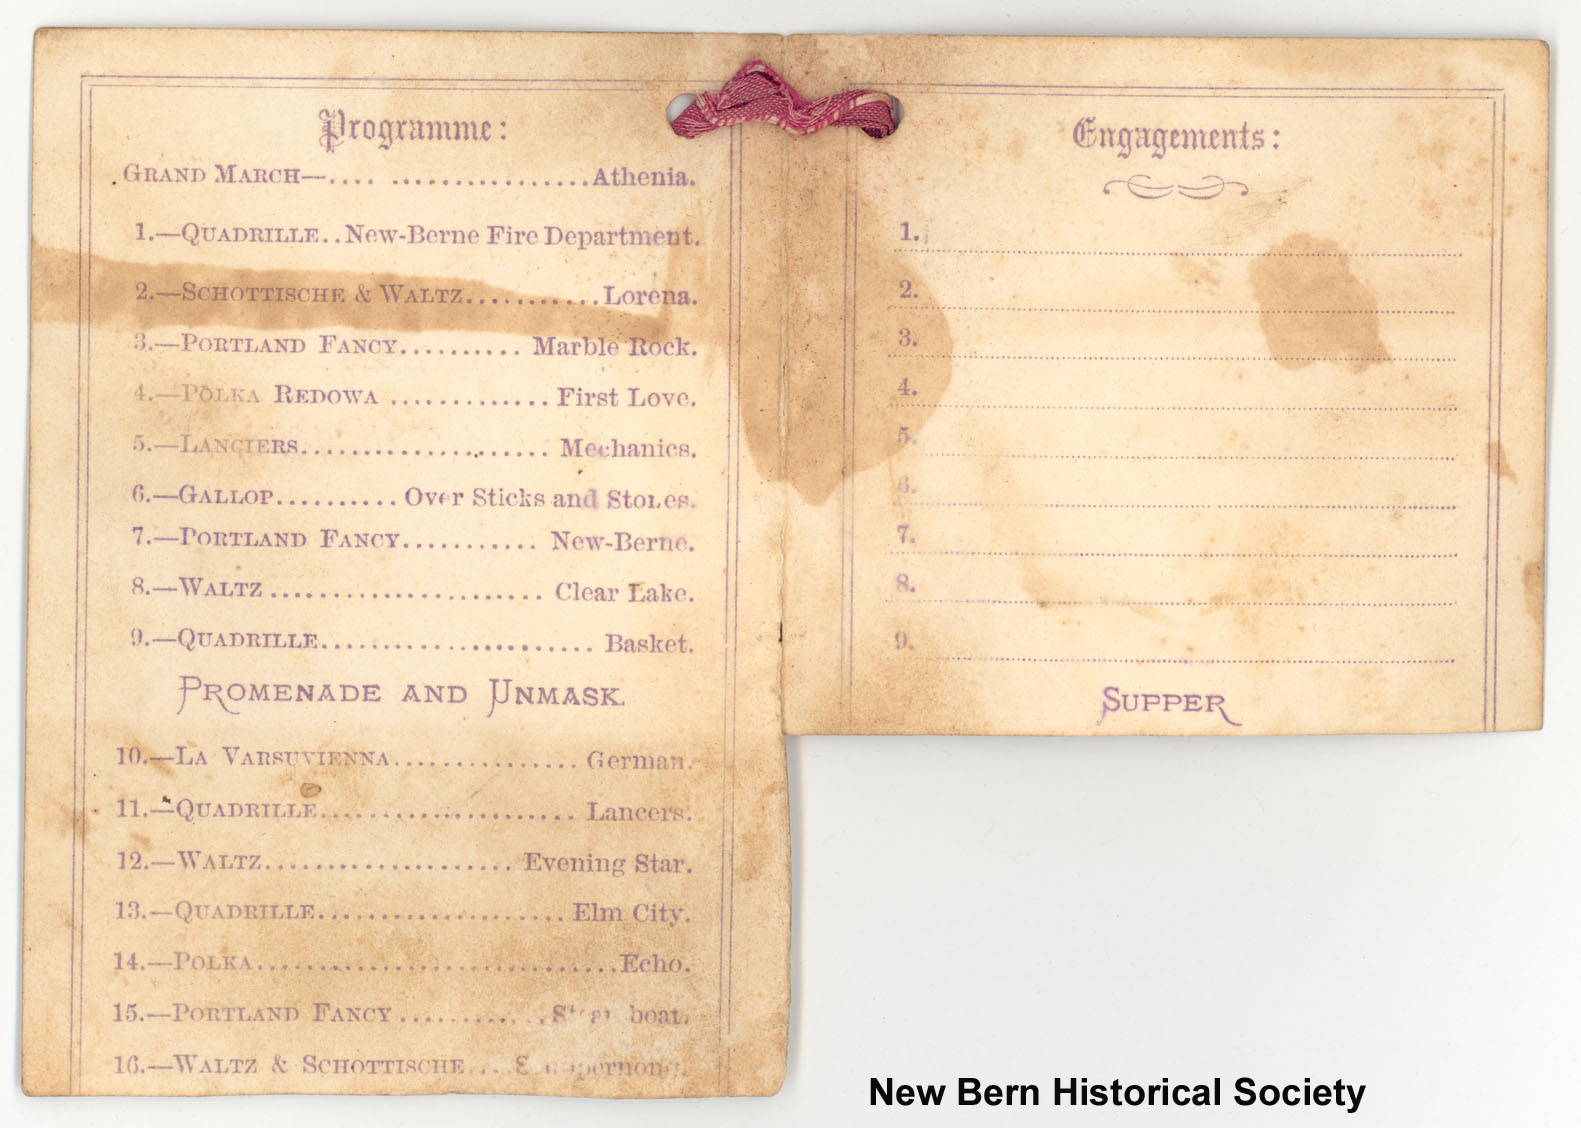 Programme:
GRAND MARCH—.... ................Athenia.
1.—QUADRILLE..New-Berne Fire Department.
2.—SCHOTTISCHE & WALTZ...........Lorena.
3.—PORTLAND FANCY.......... Marble Rock.
4.—POLKA REDOWA ............. First Love.
5.—LANCIERS.................... Mechanics.
6.—GALLOP.......... Over Sticks and Stones.
7.—PORTLAND FANCY........... New-Berne.
8.—WALTZ ...................... Clear Lake.
9.—QUADRILLE...................... Basket.
PROMENADE AND UNMASK.
10.—LA VARSUVIENNA............... German.
11.—QUADRILLE..................... Lancers.
12.—WALTZ.................... Evening Star.
13.—QUADRILLE.................... Elm City.
14.—POLKA.............................Echo.
15.—PORTLAND FANCY ............ boat.
16.—WALTZ & SCHOTTISCHE ....
Engagements:
1.
2.
3.
4.
5.
6.
7.
8.
9.
SUPPER
New Bern Historical Society